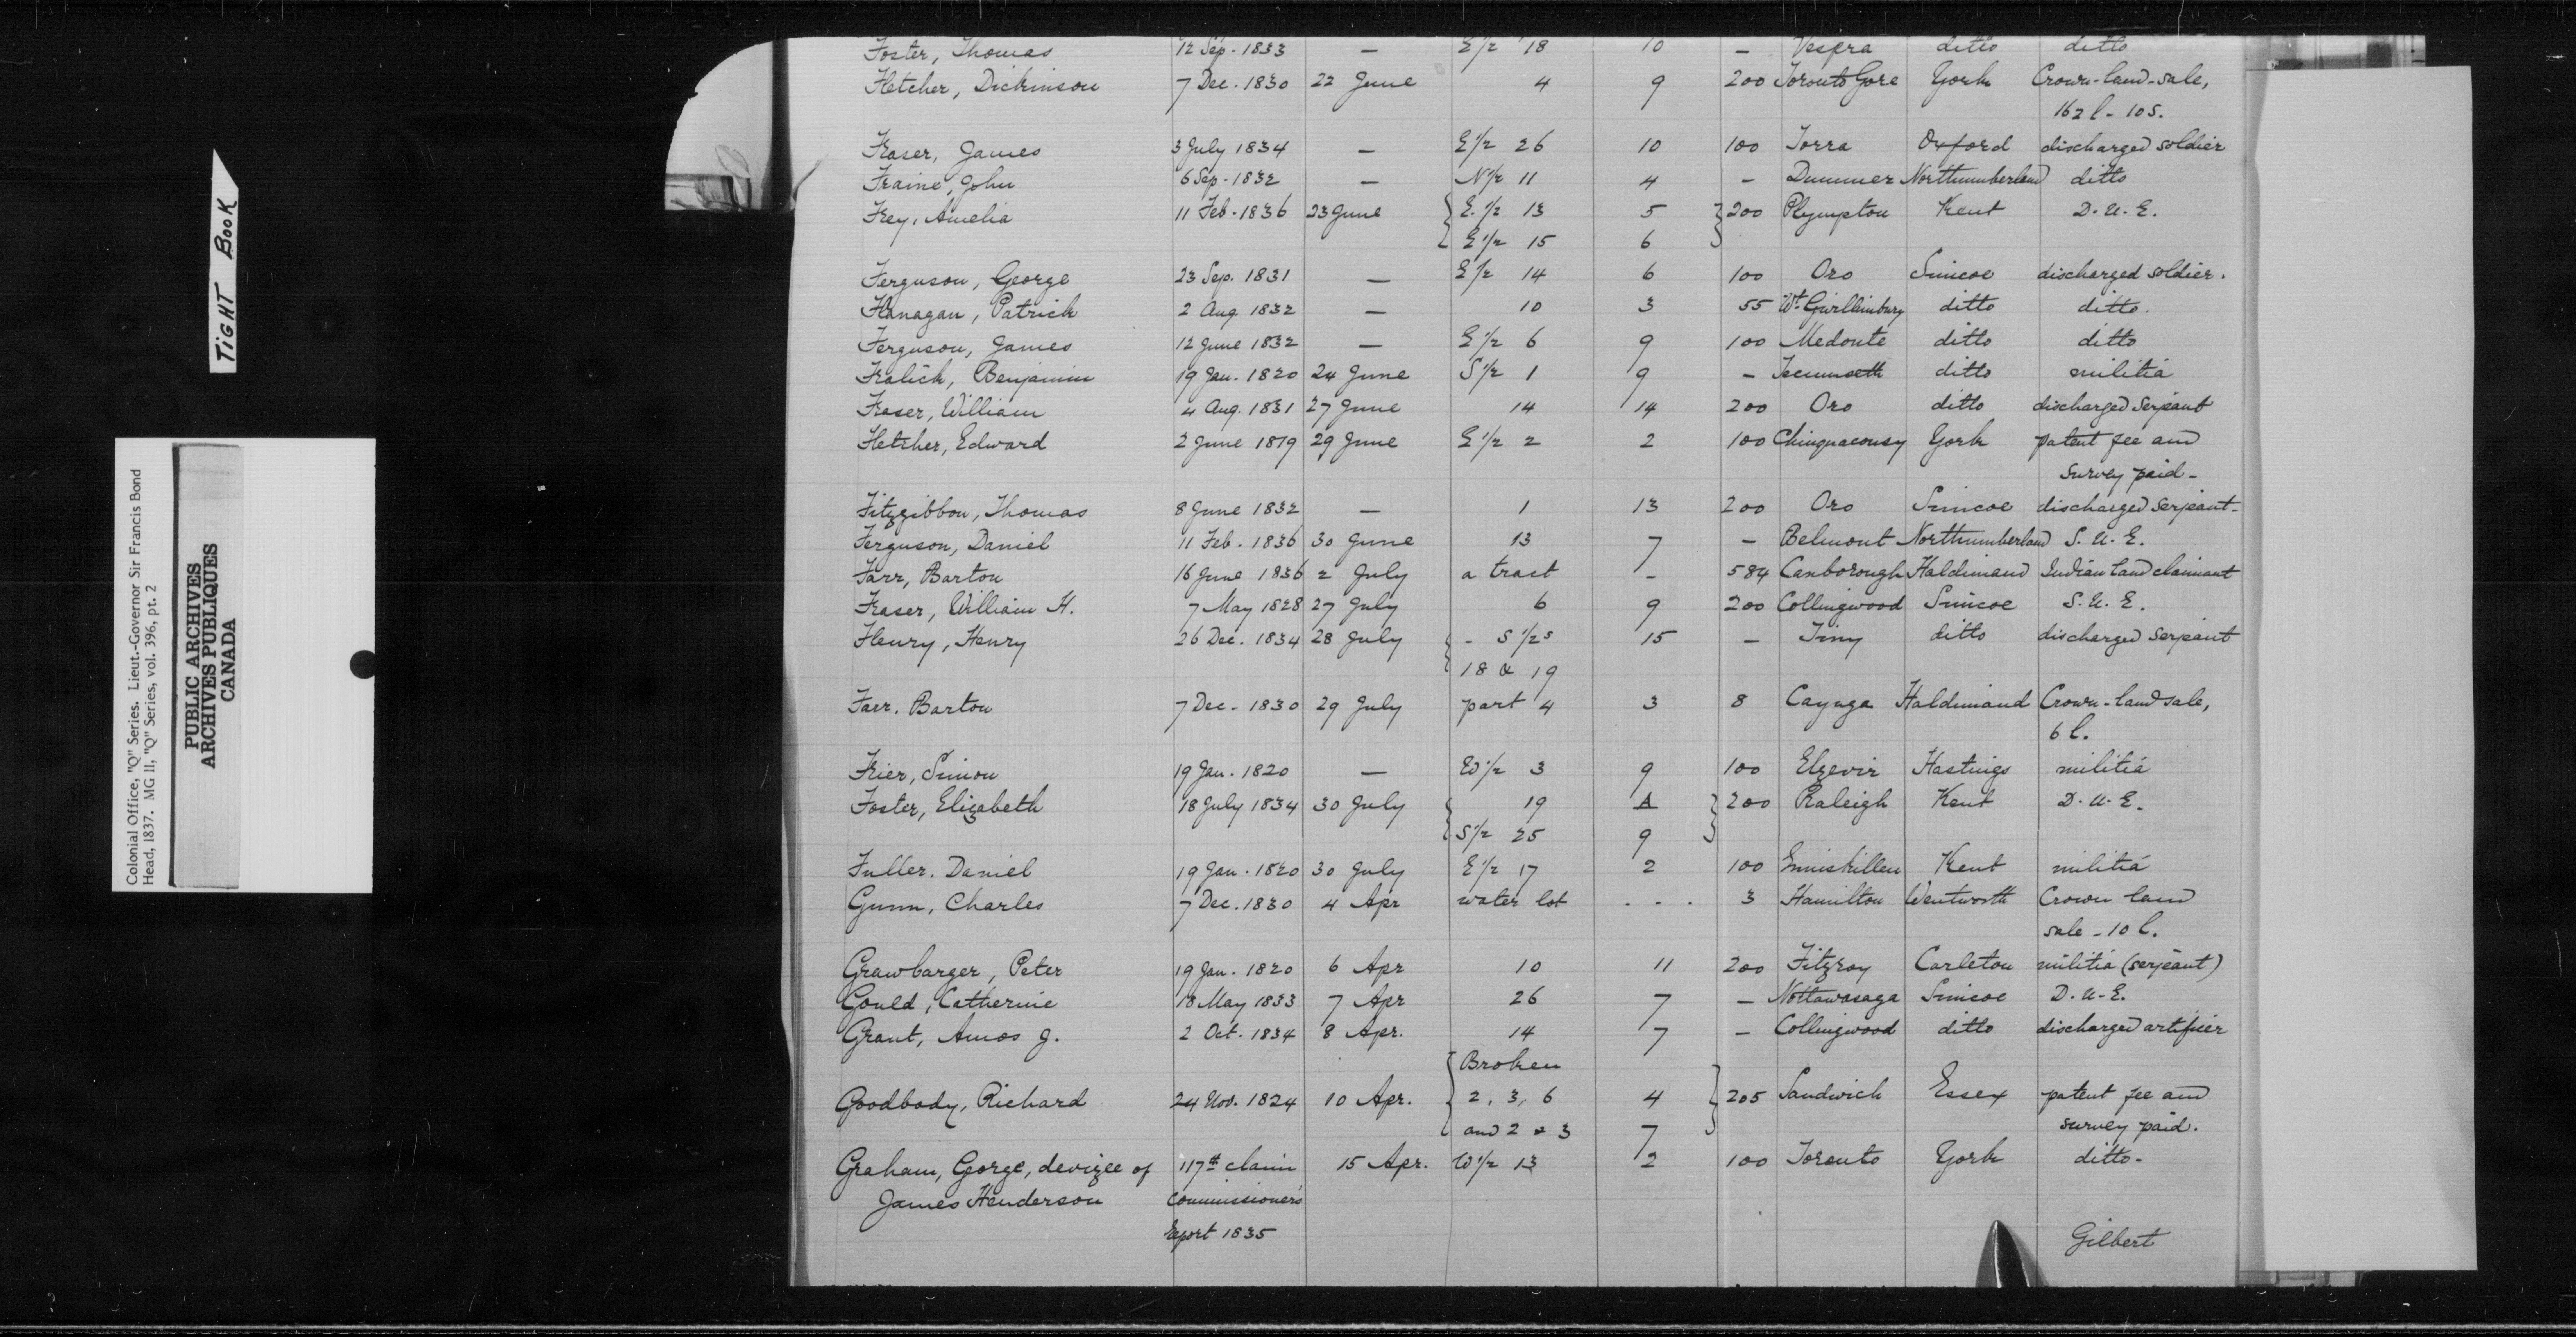 TIGHT BOOK
Colonial Office, "Q" Series. Lieut.-Governor Sir Francis Bond
Head, 1837. MG 11, "Q" Series, vol. 396, pt. 2
PUBLIC ARCHIVES
ARCHIVES PUBLIQUES
CANADA
Foster, Thomas 12 Sep. 1833 — E 1/2 18 10 — Vespra ditto ditto
Fletcher, Dickinson 7 Dec. 1830 22 June 4 9 200 Toronto Gore York Crown-land-sale,
162 l - 10 s.
Fraser, James 3 July 1834 — E 1/2 26 10 100 Zorra Oxford discharged soldier
Fraine, John 6 Sep. 1832 — N 1/2 11 4 — Dummer Northumberland ditto
Frey, Amelia 11 Feb. 1836 23 June { E. 1/2 13 5 } 200 Plympton Kent D. U. E.
E 1/2 15 6
Ferguson, George 23 Sep. 1831 — E 1/2 14 6 100 Oro Simcoe discharged soldier.
Flanagan, Patrick 2 Aug. 1832 — 10 3 55 Wt. Gwillimbury ditto ditto.
Ferguson, James 12 June 1832 — E 1/2 6 9 100 Medonte ditto ditto
Fralick, Benjamin 19 Jan. 1820 24 June S 1/2 1 9 — Tecumseth ditto militia
Fraser, William 4 Aug. 1831 27 June 14 14 200 Oro ditto discharged serjeant
Fletcher, Edward 2 June 1819 29 June E 1/2 2 2 100 Chinguacousy York patent fee and
survey paid -
Fitzgibbon, Thomas 8 June 1832 — 1 13 200 Oro Simcoe discharged serjeant -
Ferguson, Daniel 11 Feb. 1836 30 June 13 7 — Belmont Northumberland S. U. E.
Farr, Barton 16 June 1836 2 July a tract - 584 Canborough Haldimand Indian land claimant
Fraser, William H. 7 May 1828 27 July 6 9 200 Collingwood Simcoe S. U. E.
Fleury, Henry 26 Dec. 1834 28 July { - S 1/2s 15 — Tiny ditto discharged serjeant
18 & 19
Farr. Barton 7 Dec. 1830 29 July part 4 3 8 Cayuga Haldimand Crown-land sale,
6 l.
Frier, Simon 19 Jan. 1820 — W 1/2 3 9 100 Elzevir Hastings militia
Foster, Elizabeth 18 July 1834 30 July { 19 A } 200 Raleigh Kent D. U. E.
S 1/2 25 9
Fuller. Daniel 19 Jan. 1820 30 July E 1/2 17 2 100 Enniskillen Kent militia
Gunn, Charles 7 Dec. 1830 4 Apr water lot . . . 3 Hamilton Wentworth Crown land
sale - 10 l.
Grawbarger, Peter 19 Jan. 1820 6 Apr 10 11 200 Fitzroy Carleton militia (serjeant)
Gould, Catherine 18 May 1833 7 Apr 26 7 — Nottawasaga Simcoe D. U. E.
Grant, Amos J. 2 Oct. 1834 8 Apr. 14 7 — Collingwood ditto discharged artificer
Broken
Goodbody, Richard 24 Nov. 1824 10 Apr. { 2, 3, 6 4 } 205 Sandwich Essex patent fee and
and 2 & 3 7 survey paid.
Graham, George, devizee of 117th claim 15 Apr. W 1/2 13 2 100 Toronto York ditto -
James Henderson Commissioner's
Report 1835
Gilbert